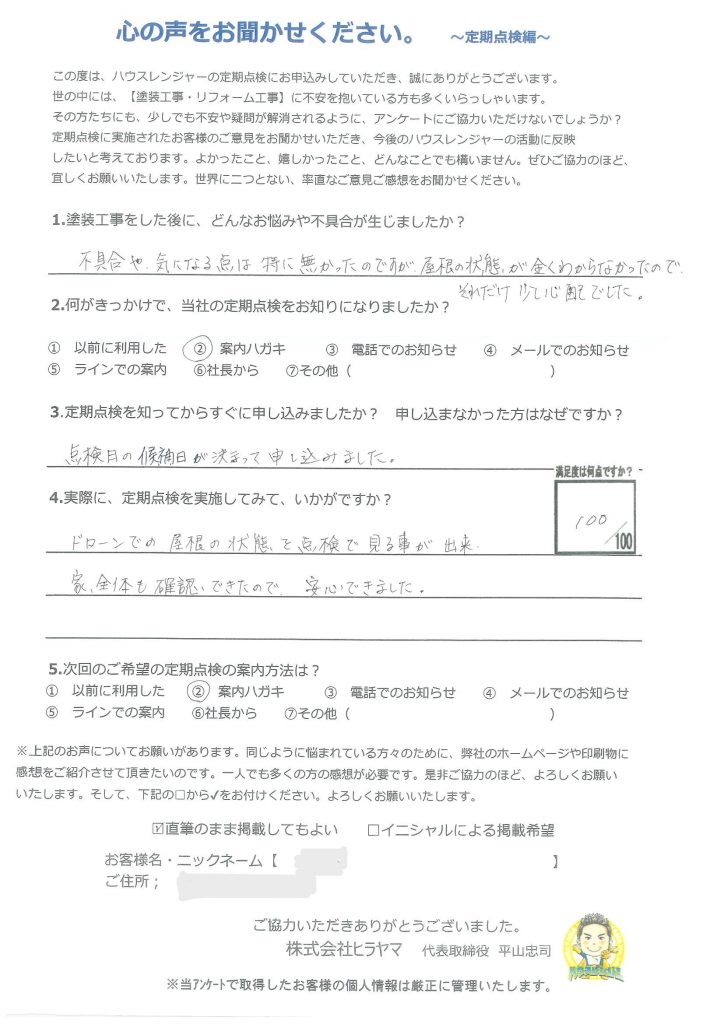 心の声をお聞かせください。 ～定期点検編～
この度は、ハウスレンジャーの定期点検にお申込みしていただき、誠にありがとうございます。
世の中には、【塗装工事・リフォーム工事】に不安を抱いている方も多くいらっしゃいます。
その方たちにも、少しでも不安や疑問が解消されるように、アンケートにご協力いただけないでしょうか？
定期点検に実施されたお客様のご意見をお聞かせいただき、今後のハウスレンジャーの活動に反映
したいと考えております。よかったこと、嬉しかったこと、どんなことでも構いません。ぜひご協力のほど、
宜しくお願いいたします。世界に二つとない、率直なご意見ご感想をお聞かせください。
1.塗装工事をした後に、どんなお悩みや不具合が生じましたか？
不具合や、気になる点は特に無かったのですが、屋根の状態が全くわからなかったので、
それだけ少し心配でした。
2.何がきっかけで、当社の定期点検をお知りになりましたか？
① 以前に利用した ② 案内ハガキ ③ 電話でのお知らせ ④ メールでのお知らせ
⑤ ラインでの案内 ⑥社長から ⑦その他（ ）
3.定期点検を知ってからすぐに申し込みましたか？ 申し込まなかった方はなぜですか？
点検日の候補日が決まって申し込みました。
満足度は何点ですか？
4.実際に、定期点検を実施してみて、いかがですか？
100/100
ドローンでの屋根の状態を点検で見る事が出来、
家全体も確認できたので、安心できました。
5.次回のご希望の定期点検の案内方法は？
① 以前に利用した ② 案内ハガキ ③ 電話でのお知らせ ④ メールでのお知らせ
⑤ ラインでの案内 ⑥社長から ⑦その他（ ）
※上記のお声についてお願いがあります。同じように悩まれている方々のために、弊社のホームページや印刷物に
感想をご紹介させて頂きたいのです。一人でも多くの方の感想が必要です。是非ご協力のほど、よろしくお願い
いたします。そして、下記の□から✓をお付けください。よろしくお願いいたします。
☑直筆のまま掲載してもよい □イニシャルによる掲載希望
お客様名・ニックネーム【 】
ご住所；
ご協力いただきありがとうございました。
株式会社ヒラヤマ 代表取締役 平山忠司
※当ｱﾝｹｰﾄで取得したお客様の個人情報は厳正に管理いたします。